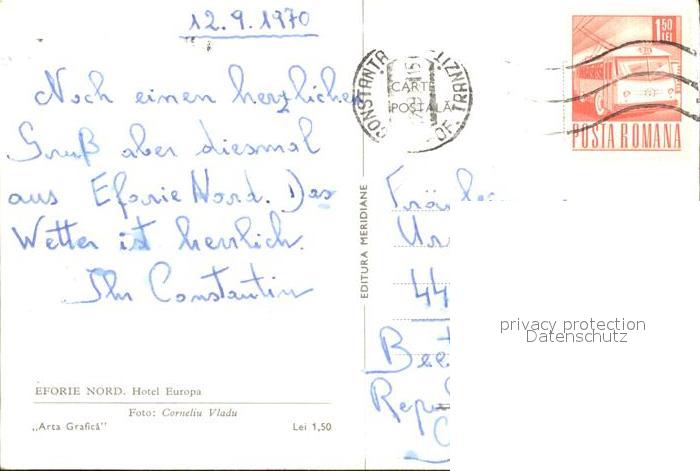 12.9.1970
Noch einen herzlichen
Gruß aber diesmal
aus Eforie Nord. Das
Wetter ist herrlich.
Ihr Constantin
EFORIE NORD. Hotel Europa
Foto: Corneliu Vladu
„Arta Grafică"
Lei 1,50
EDITURA MERIDIANE
CONSTANTA
CARTE
POȘTALĂ
OF. TRANZIT
1,50
LEI
POSTA ROMANA
Ur
44
Beet
Repu
privacy protection
Datenschutz